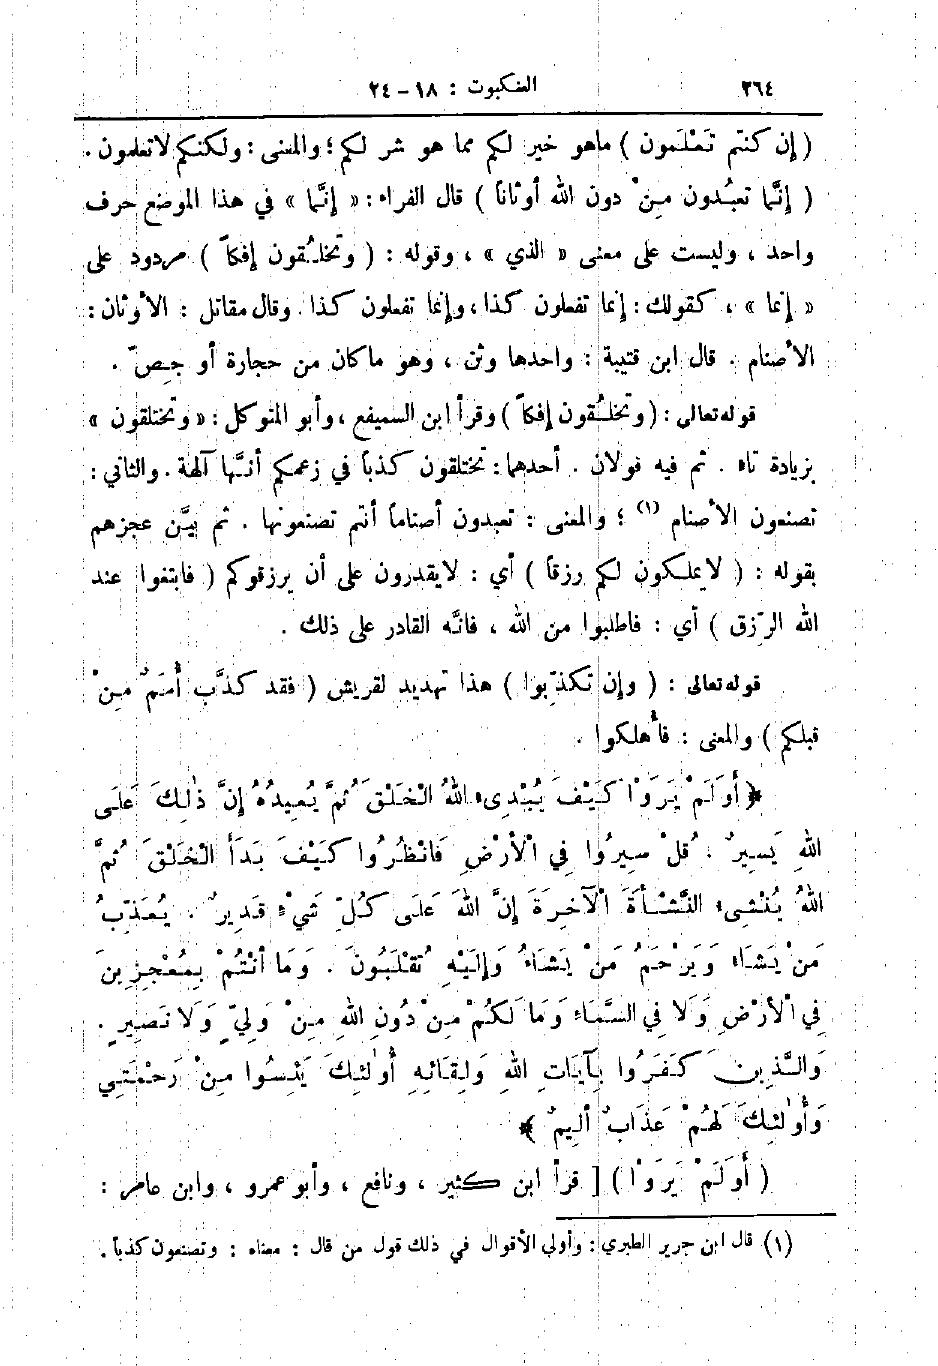 ٢٦٤ العنكبوت : ١٨ – ٢٤
( إن كنتم تَعْلَمون ) ماهو خير لكم مما هو شر لكم ؛ والمعنى : ولكنكم لاتعلمون .
( إنَّما تعبُدون مِنْ دون الله أوثاناً ) قال الفراء : « إنَّما » في هذا الموضع حرف
واحد ، وليست على معنى « الذي » ، وقوله : ( وتخلُقون إفكاً ) مردود على
« إنما » ، كقولك : إنما تفعلون كذا ، وإنما تفعلون كذا . وقال مقاتل : الأوثان :
الأصنام . قال ابن قتيبة : واحدها وثن ، وهو ماكان من حجارة أو جِصّ .
قوله تعالى : ( وتخلُقون إفكاً ) وقرأ ابن السميفع ، وأبو المتوكل : « وتختلقون »
بزيادة تاء . ثم فيه قولان . أحدهما : تختلقون كذباً في زعمكم أنَّها آلهة . والثاني :
تصنعون الأصنام (١) ؛ والمعنى : تعبدون أصناماً أنتم تصنعونها . ثم بيَّن عجزهم
بقوله : ( لايملكون لكم رزقاً ) أي : لايقدرون على أن يرزقوكم ( فابتغوا عند
الله الرِّزق ) أي : فاطلبوا من الله ، فانَّه القادر على ذلك .
قوله تعالى : ( وإن تكذِّبوا ) هذا تهديد لقريش ( فقد كذَّب أُممٌ مِنْ
قبلكم ) والمعنى : فأُهلكوا .
﴿ أَوَلَمْ يَرَوْا كَيْفَ يُبْدِىءُ اللهُ الْخَلْقَ ثُمَّ يُعِيدُهُ إِنَّ ذٰلِكَ عَلَى
اللهِ يَسِيرٌ . قُلْ سِيرُوا فِي الْأَرْضِ فَانْظُرُوا كَيْفَ بَدَأَ الْخَلْقَ ثُمَّ
اللهُ يُنْشِىءُ النَّشْأَةَ الْآخِرَةَ إِنَّ اللهَ عَلَى كُلِّ شَيْءٍ قَدِيرٌ . يُعَذِّبُ
مَنْ يَشَاءُ وَيَرْحَمُ مَنْ يَشَاءُ وَإِلَيْهِ تُقْلَبُونَ . وَمَا أَنْتُمْ بِمُعْجِزِينَ
فِي الْأَرْضِ وَلَا فِي السَّمَاءِ وَمَا لَكُمْ مِنْ دُونِ اللهِ مِنْ وَلِيٍّ وَلَا نَصِيرٍ .
وَالَّذِينَ كَفَرُوا بِآيَاتِ اللهِ وَلِقَائِهِ أُولٰئِكَ يَئِسُوا مِنْ رَحْمَتِي
وَأُولٰئِكَ لَهُمْ عَذَابٌ أَلِيمٌ ﴾
( أَوَلَمْ يَرَوْا ) [ قرأ ابن كثير ، ونافع ، وأبو عمرو ، وابن عامر :
(١) قال ابن جرير الطبري : وأولى الأقوال في ذلك قول من قال : معناه : وتصنعون كذباً .